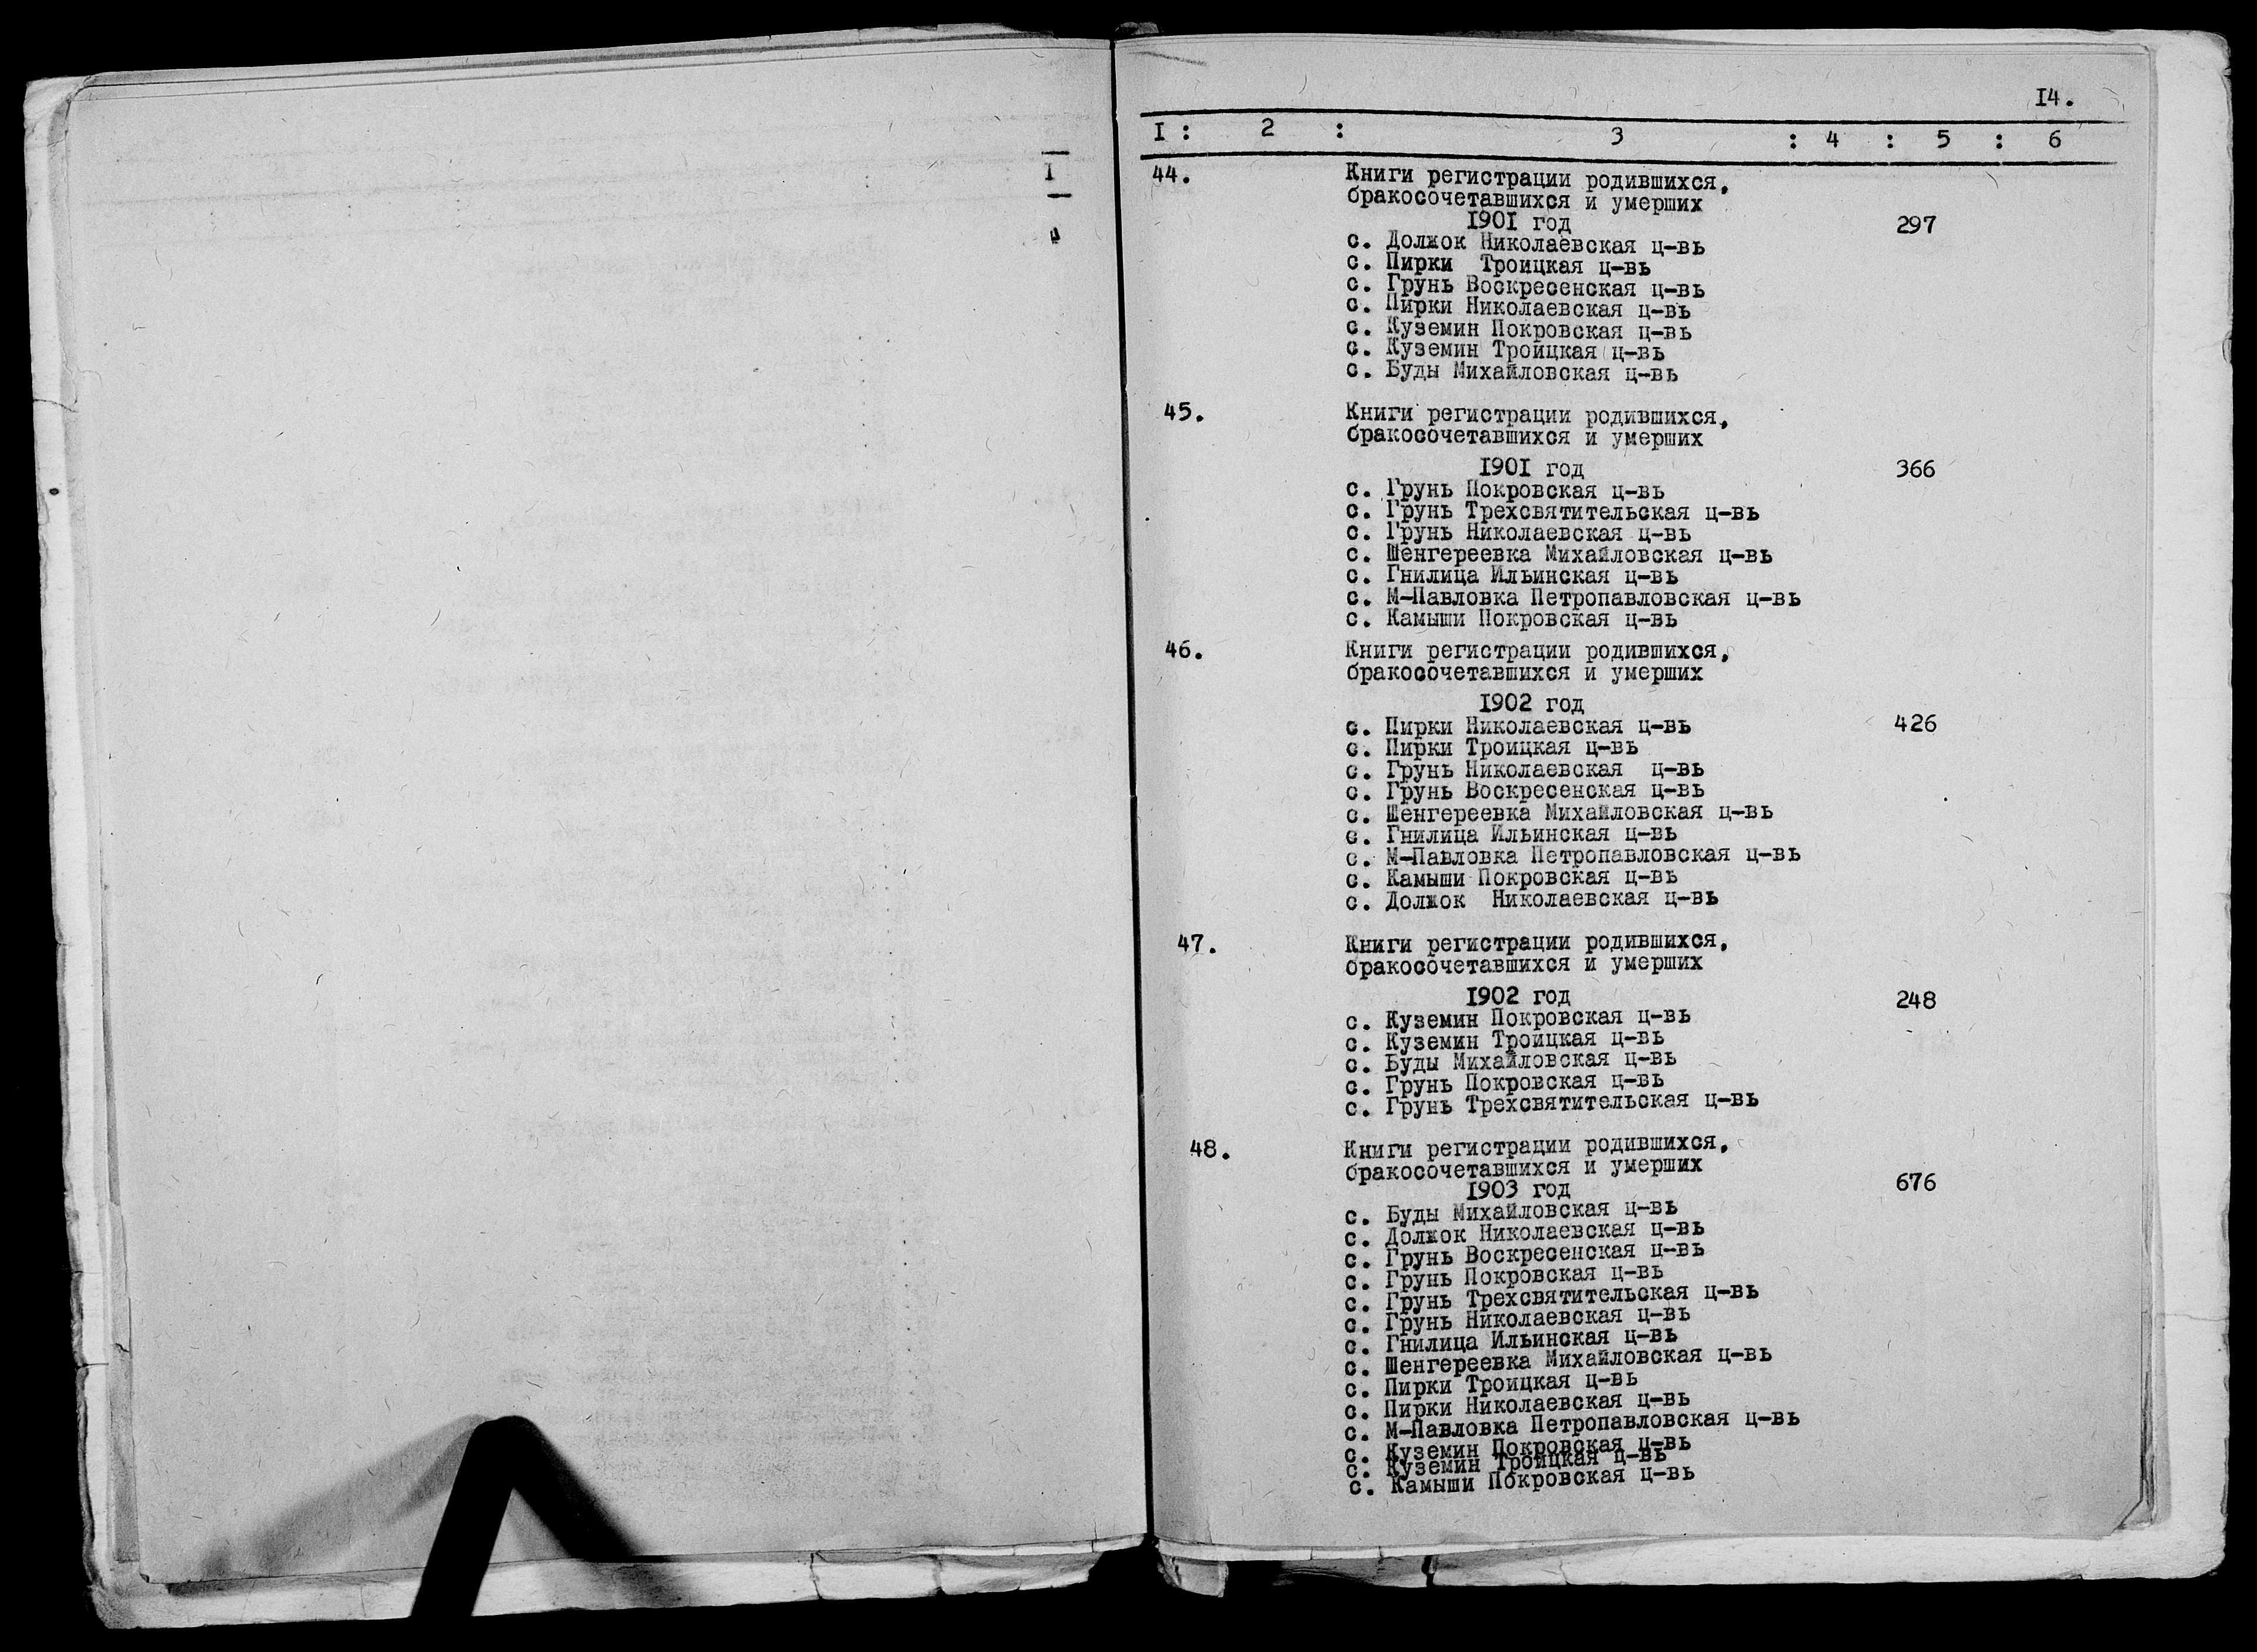 I
14.
I : 2 : 3 : 4 : 5 : 6
44. Книги регистрации родившихся,
бракосочетавшихся и умерших
1901 год 297
с. Должок Николаевская ц-вь
с. Пирки Троицкая ц-вь
с. Грунь Воскресенская ц-вь
с. Пирки Николаевская ц-вь
с. Куземин Покровская ц-вь
с. Куземин Троицкая ц-вь
с. Буды Михайловская ц-вь
45. Книги регистрации родившихся,
бракосочетавшихся и умерших
1901 год 366
с. Грунь Покровская ц-вь
с. Грунь Трехсвятительская ц-вь
с. Грунь Николаевская ц-вь
с. Шенгереевка Михайловская ц-вь
с. Гнилица Ильинская ц-вь
с. М-Павловка Петропавловская ц-вь
с. Камыши Покровская ц-вь
46. Книги регистрации родившихся,
бракосочетавшихся и умерших
1902 год
с. Пирки Николаевская ц-вь 426
с. Пирки Троицкая ц-вь
с. Грунь Николаевская ц-вь
с. Грунь Воскресенская ц-вь
с. Шенгереевка Михайловская ц-вь
с. Гнилица Ильинская ц-вь
с. М-Павловка Петропавловская ц-вь
с. Камыши Покровская ц-вь
с. Должок Николаевская ц-вь
47. Книги регистрации родившихся,
бракосочетавшихся и умерших
1902 год 248
с. Куземин Покровская ц-вь
с. Куземин Троицкая ц-вь
с. Буды Михайловская ц-вь
с. Грунь Покровская ц-вь
с. Грунь Трехсвятительская ц-вь
48. Книги регистрации родившихся,
бракосочетавшихся и умерших
1903 год 676
с. Буды Михайловская ц-вь
с. Должок Николаевская ц-вь
с. Грунь Воскресенская ц-вь
с. Грунь Покровская ц-вь
с. Грунь Трехсвятительская ц-вь
с. Грунь Николаевская ц-вь
с. Гнилица Ильинская ц-вь
с. Шенгереевка Михайловская ц-вь
с. Пирки Троицкая ц-вь
с. Пирки Николаевская ц-вь
с. М-Павловка Петропавловская ц-вь
с. Куземин Покровская ц-вь
с. Куземин Троицкая ц-вь
с. Камыши Покровская ц-вь